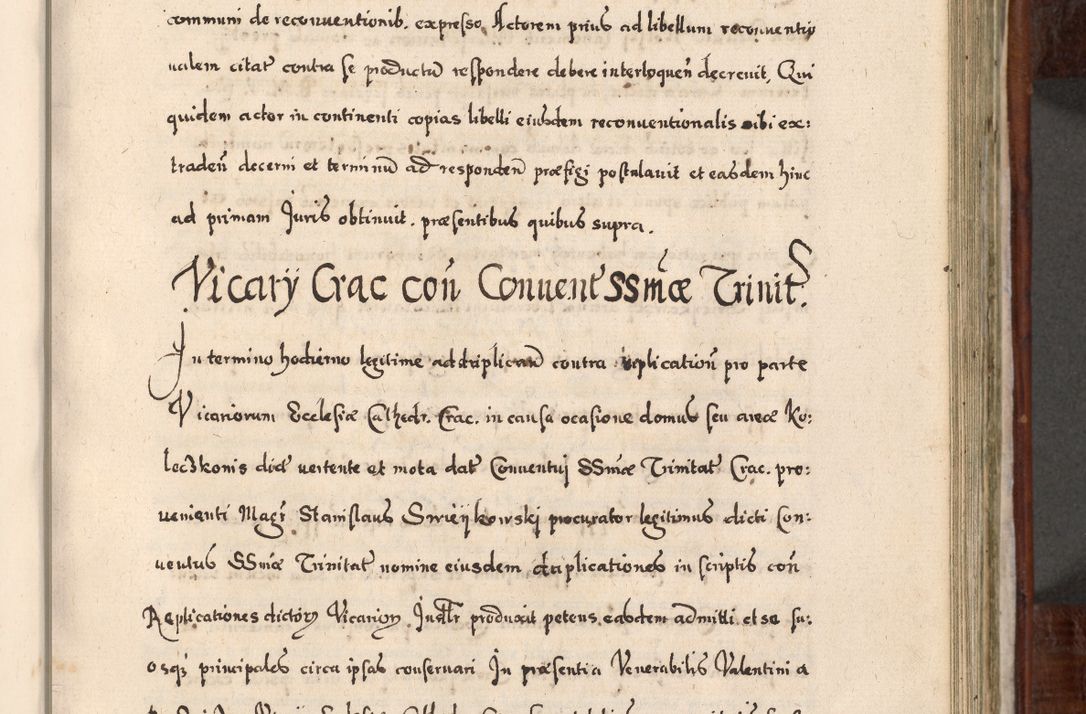 communi de reconuentionib. expresso Actorem prius ad libellum reconventio
nalem citat contra se productũ respondere debere interloqueñ decrevit, Qui
quidem actor in continenti copias libelli eiusdem reconuentionalis sibi ex:
tradeñ decerni et terminũ ad respondeñ præfigi postulavit et easdem hinc
ad primam Juris obtinuit. præsentibus quibus supra.
Vicary Crac coñ Conuent SSmæ Trinit.
In termino hodierno legitime ad duplicand contra replicationẽ pro parte
Vicariorum Ecclesiæ Cathedr. Crac. in causa ocasione domus seu areæ Ko:
leczkonis dict vertente et mota dat Conventuj SSmæ Trinitat Crac. pro:
venienti Magr Stanislaus Swieykowskj procurator legitimus dicti Con:
ventus SSmæ Trinitat nomine eiusdem duplicationes in scriptis coñ
Replicationes dictor Vicarior produxit petens easdem admitti et se su:
osq principales circa ipsas conservari In præsentia Venerabilis Valentini a